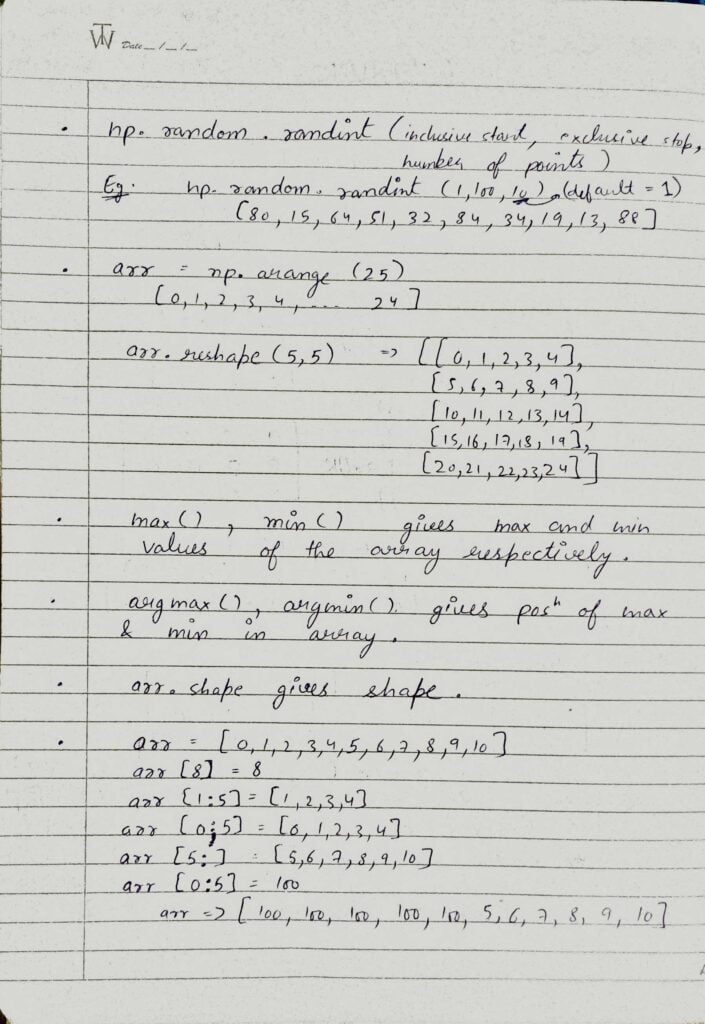 TW Date _/_/_
• np. random. randint (inclusive start, exclusive stop,
number of points)
Eg. np. random. randint (1,100,10) (default = 1)
[80, 15, 64, 51, 32, 84, 34, 19, 13, 88]
• arr = np. arange (25)
[0,1,2,3,4, .... 24]
arr. reshape (5,5) => [[0,1,2,3,4],
[5,6,7,8,9],
[10,11,12,13,14],
[15,16,17,18,19],
[20,21,22,23,24]]
• max(), min() gives max and min
values of the array respectively.
• argmax(), argmin(). gives posn of max
& min in array.
• arr. shape gives shape.
• arr = [0,1,2,3,4,5,6,7,8,9,10]
arr [8] = 8
arr [1:5] = [1,2,3,4]
arr [0:5] = [0,1,2,3,4]
arr [5:] = [5,6,7,8,9,10]
arr [0:5] = 100
arr => [100, 100, 100, 100, 100, 5, 6, 7, 8, 9, 10]